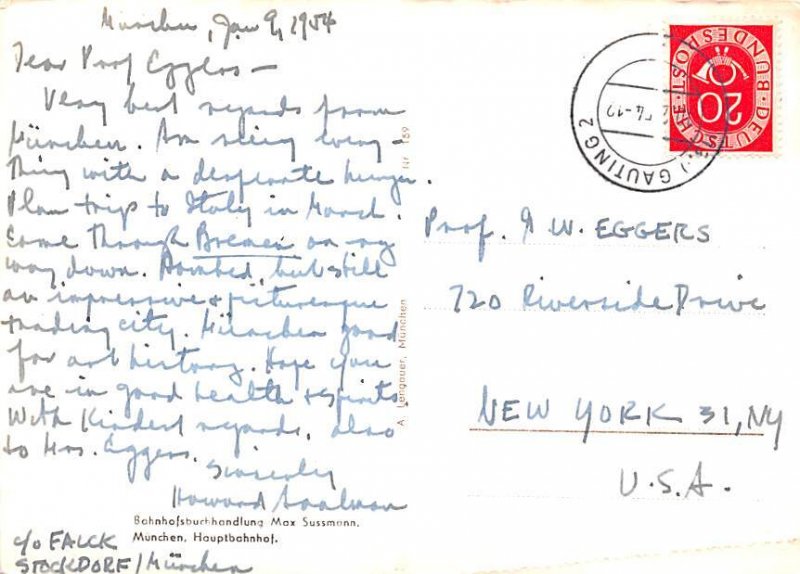 München, Jan 9, 1954
Dear Prof Eggers —
Very best regards from
München. Am seeing every-
thing with a desperate hunger.
Plan trip to Italy in March.
Came through Bremen on my
way down. Bombed, but still
an impressive & picturesque
trading city. München good
for art history. Hope you
are in good health & spirits.
With kindest regards, also
to Mrs. Eggers.
Sincerely
Howard Saalman
Bahnhofsbuchhandlung Max Sussmann,
München, Hauptbahnhof.
c/o FALCK
STOCKDORF/München
A. Lengauer, München
Nr. 159
GAUTING 2
DEUTSCHE BUNDESPOST
20
Prof. G W. EGGERS
720 Riverside Drive
NEW YORK 31, NY
U.S.A.